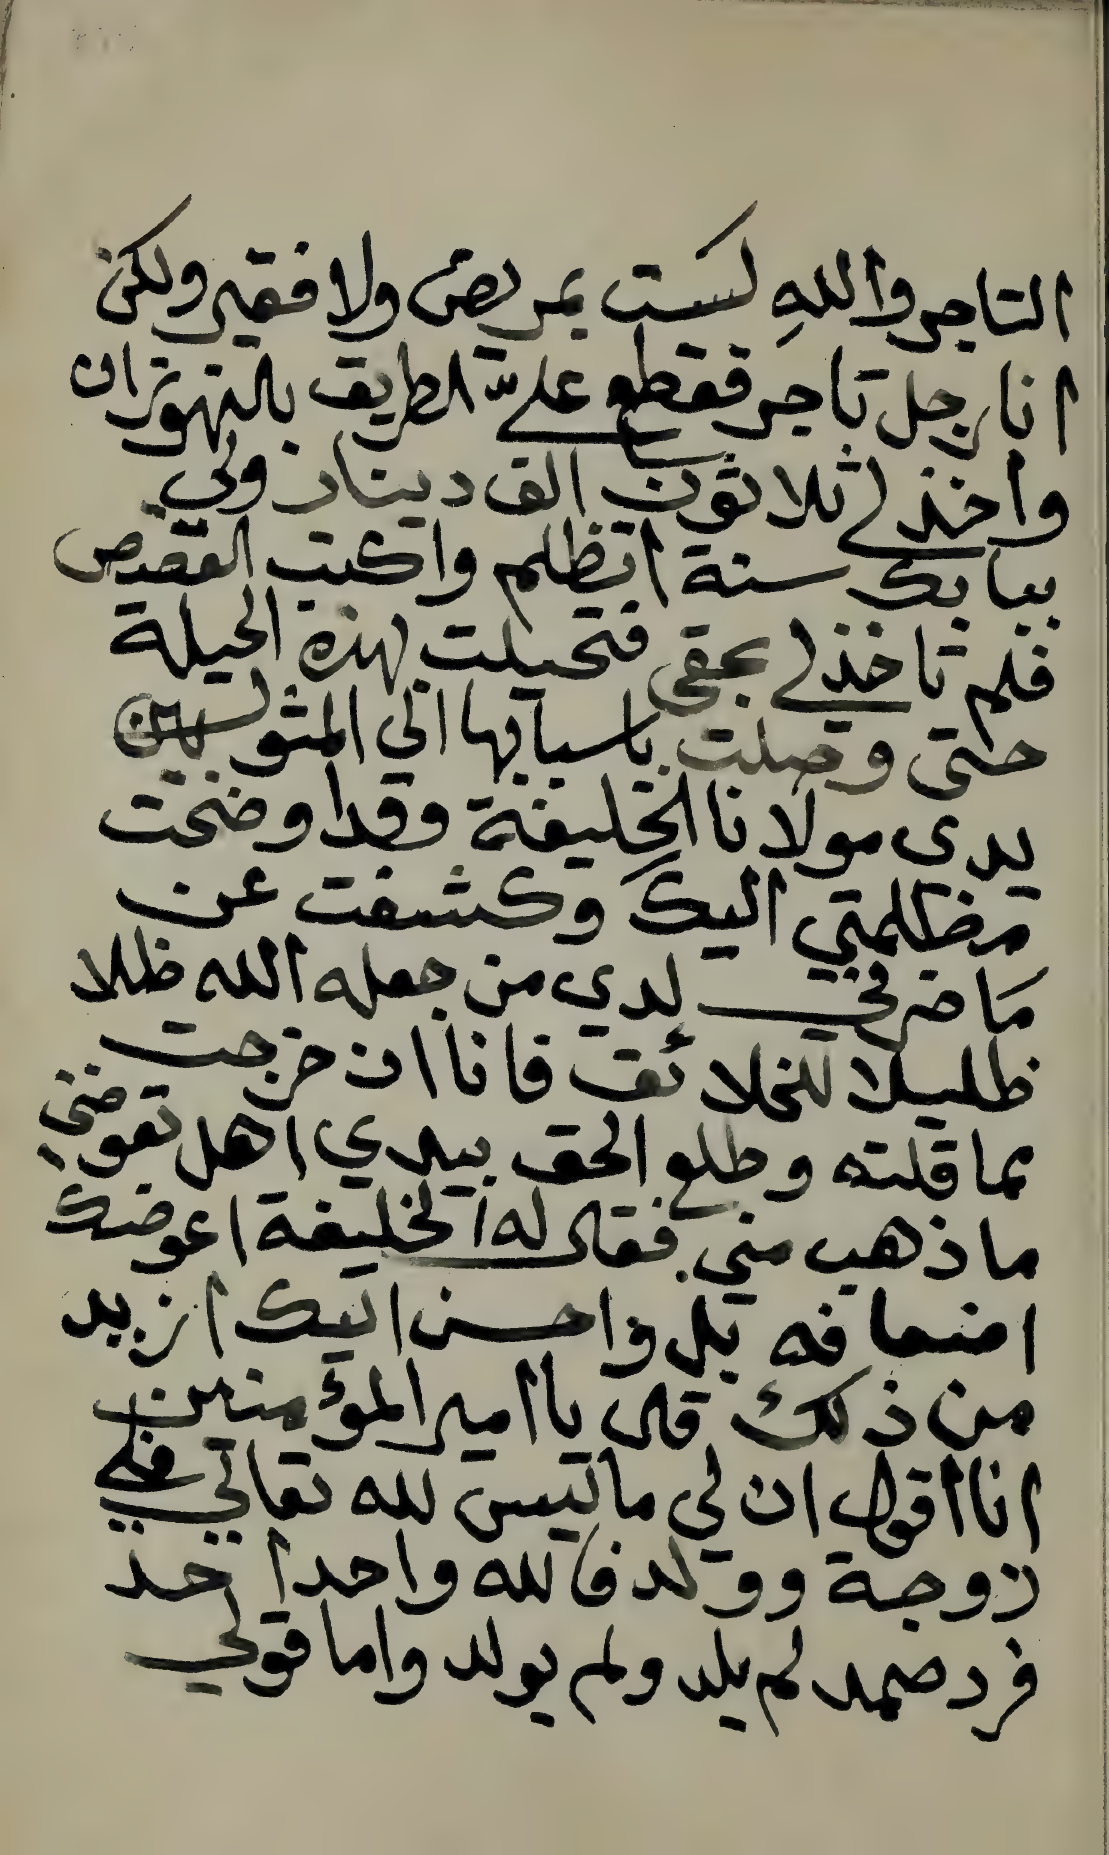 التاجر واللهِ لست بمريض ولا فقير ولكن
انا رجل تاجر فقطع عليّ الطريق بالنهروان
واخذ لي ثلاثون الف دينار ولي
ببابك سنة اتظلم واكتب القصص
فلم تاخذ لي بحقي فتحيلت بهذه الحيلة
حتى وصلت باسبابها الى المثول بين
يدى مولانا الخليفة وقد اوضحت
مظلمتي اليك وكشفت عن
ما ضرني لدي من جعله الله ظلا
ظليلا للخلائق فانا ان خرجت
مما قلته وطلع الحق بيدي اهل تعوضني
ما ذهب مني فقال له الخليفة اعوضك
اضعافه بل واحسن اليك ازيد
من ذلك قال يا امير المؤمنين
انا اقول ان لي ما ليس لله تعالي فلي
زوجة وولد فالله واحد احد
فرد صمد لم يلد ولم يولد واما قولي